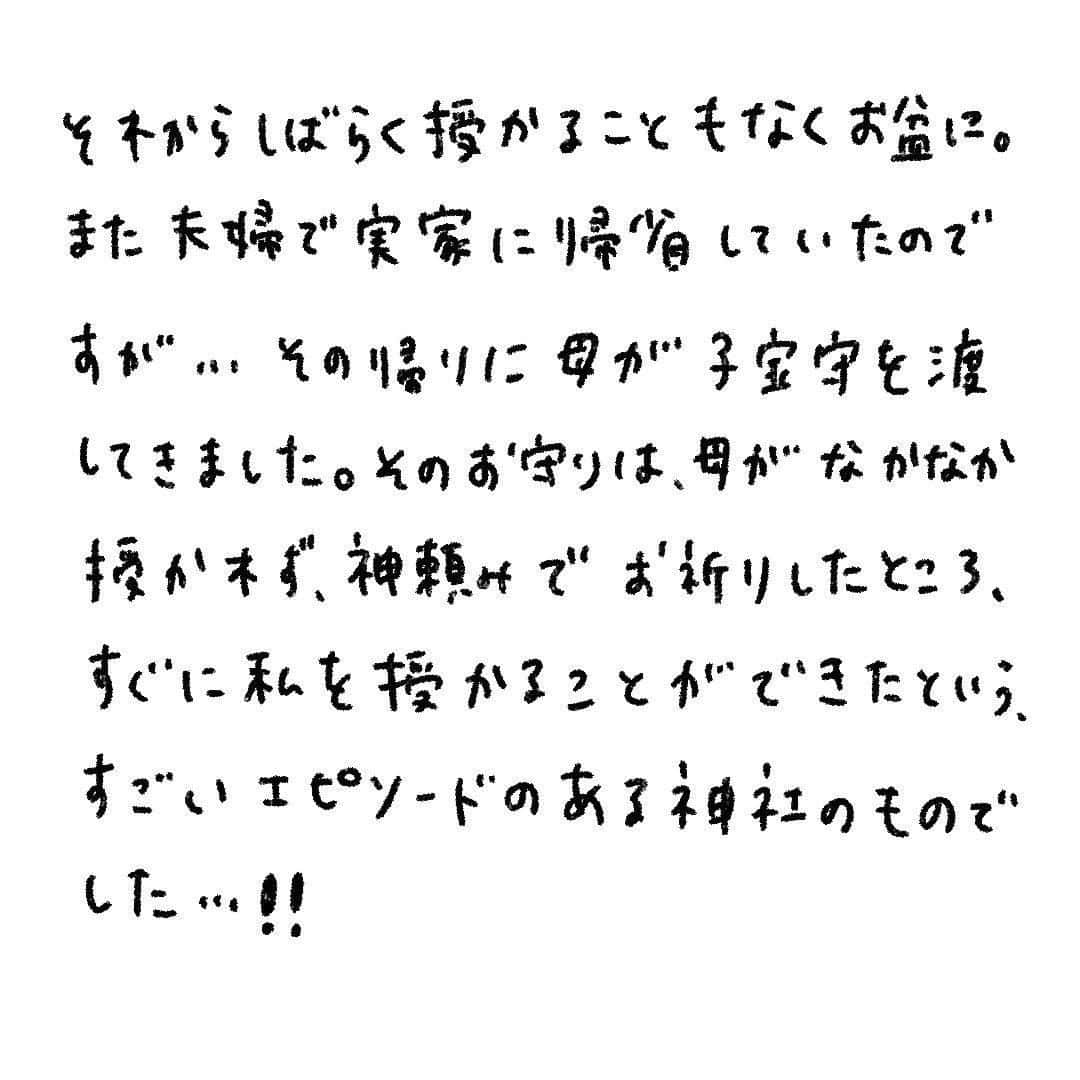 それからしばらく授かることもなくお盆に。
また夫婦で実家に帰省していたので
すが…その帰りに母が子宝守を渡
してきました。そのお守りは、母がなかなか
授かれず、神頼みでお祈りしたところ、
すぐに私を授かることができたという、
すごいエピソードのある神社のもので
した…!!